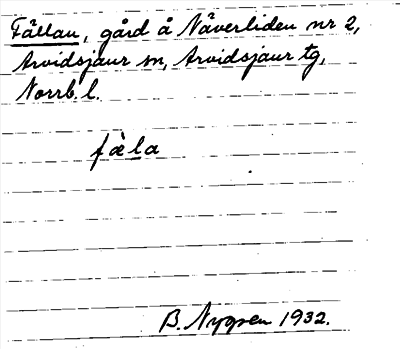 Fällan, gård å Näverliden nr 2,
Arvidsjaur sn, Arvidsjaur tg,
Norrb. l.
fàla
B. Nygren 1932.